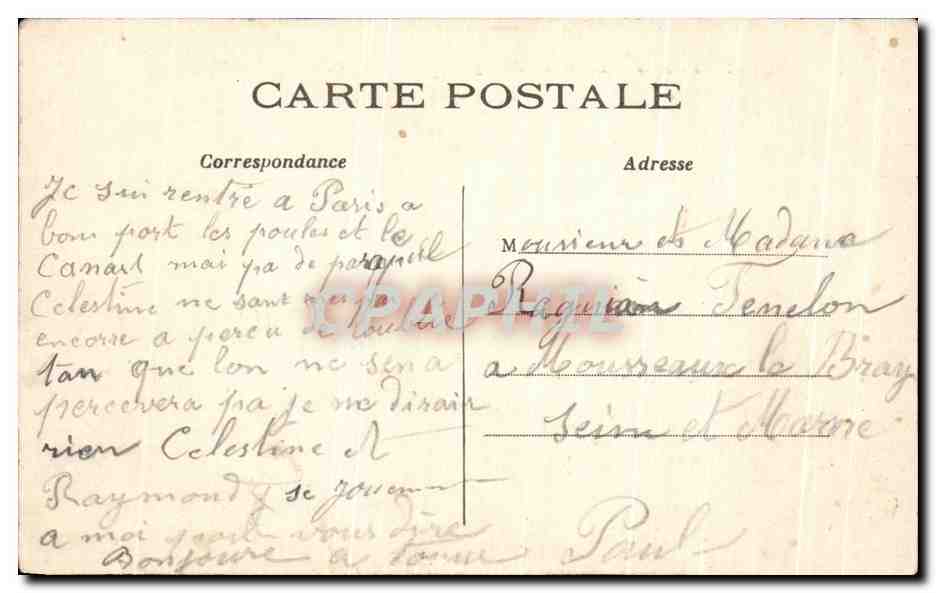 CARTE POSTALE
Correspondance
Je sui rentré a Paris a
bom port les poules et le
Canart mai pa de
Celestine ne sont pa
encorre a percu de
tan que lon ne sen a
percevera pa je ne dirair
rien Celestine et
Raymond se jouement
a moi pour vous dire
Bonjoure a tous Paul
Adresse
Monsieur et Madame
Fenelon
a Mousseaux le Bray
Seine et Marne
CPAPHIL